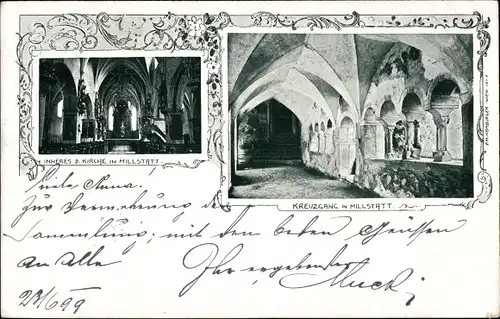 INNERES D. KIRCHE IN MILLSTATT.
KREUZGANG IN MILLSTATT.
Anna.
Zur Vermehrung de
Sammlung, mit den besten Grüssen
an Alle
Ihr ergebenster
23/6 99